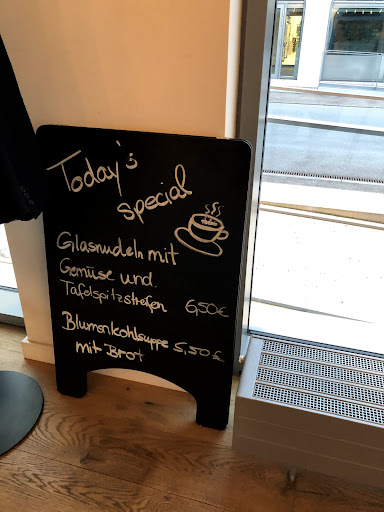 Today's
special
Glasnudeln mit
Gemüse und
Tafelspitzstreifen 6,50€
Blumenkohlsuppe 5,50€
mit Brot